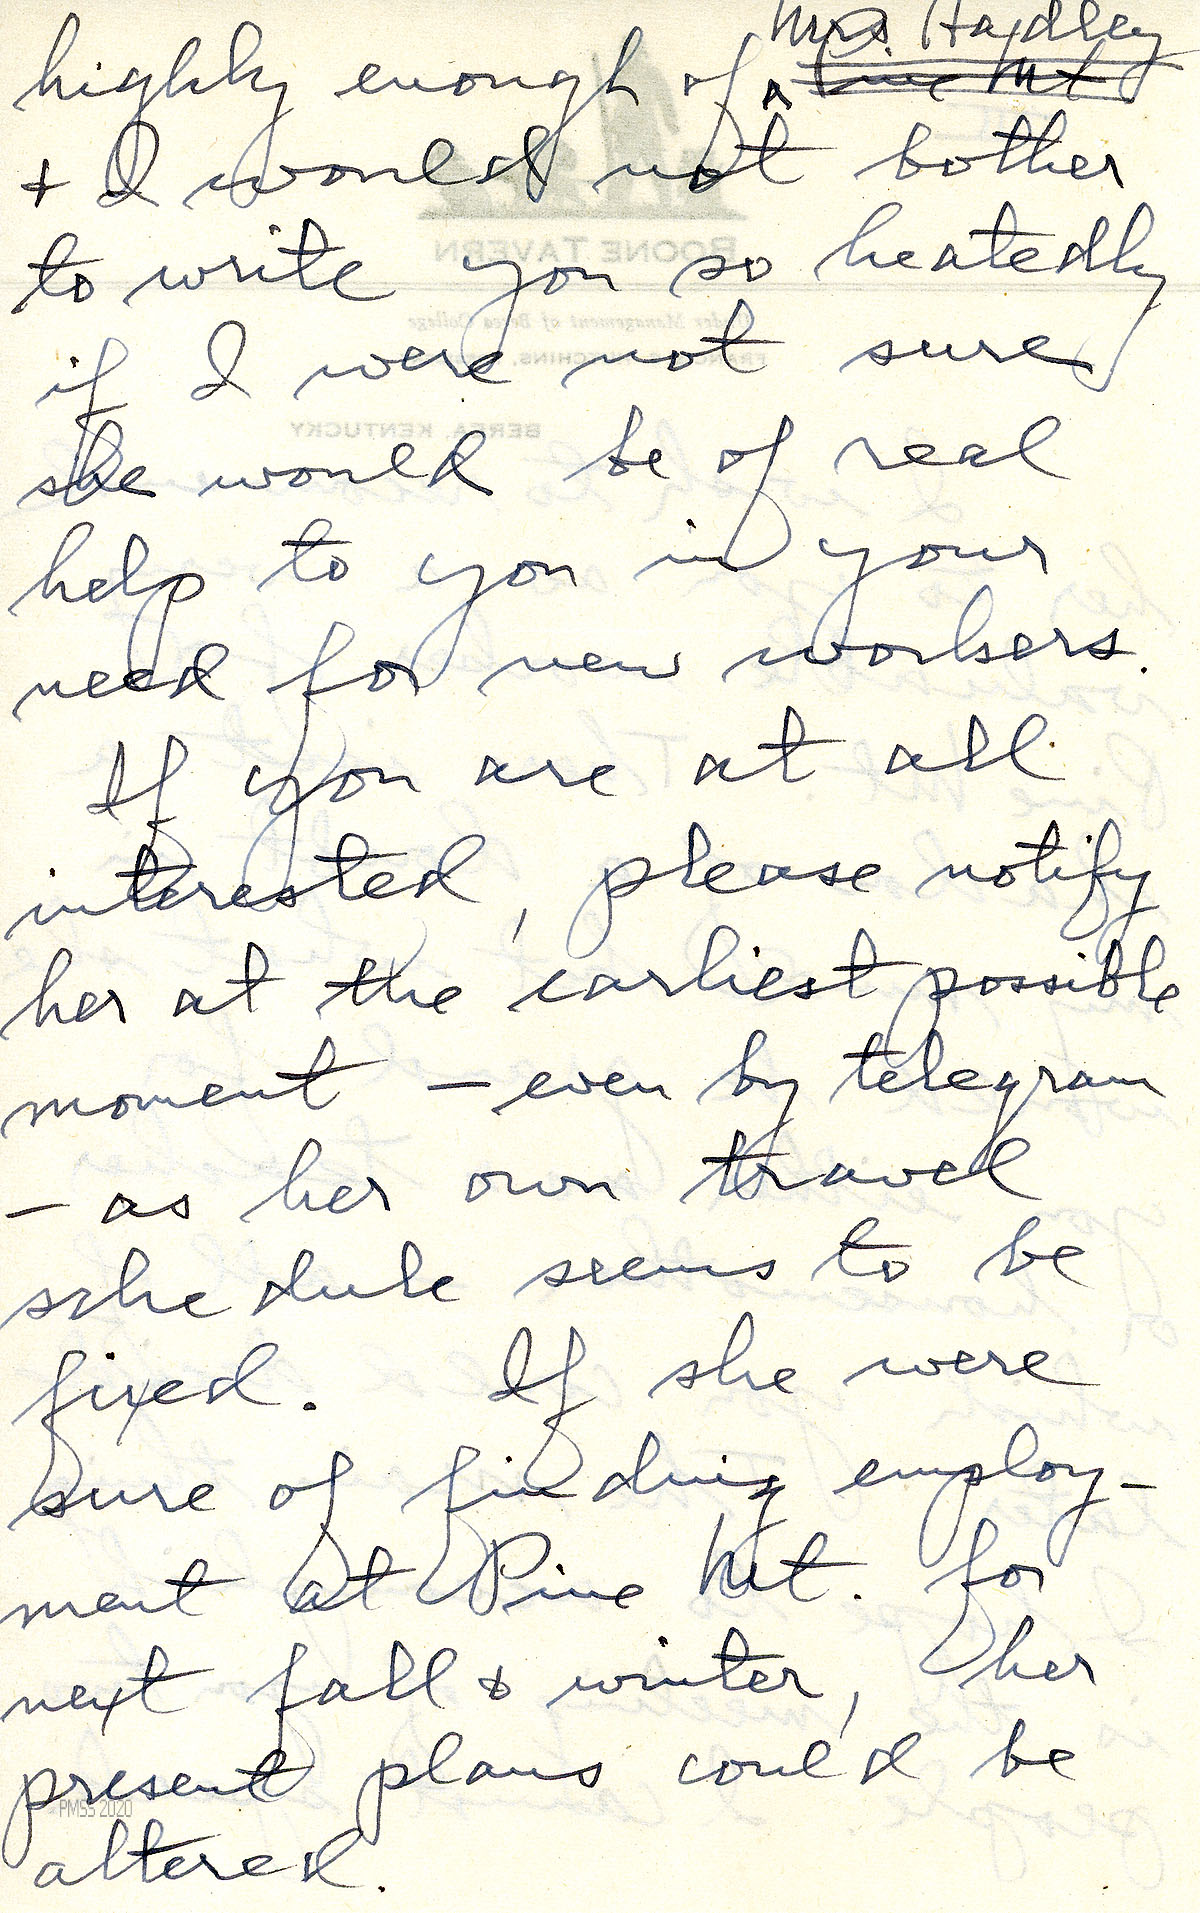 Mrs. Hadley
highly enough of ^ Pine Mt
+ I would not bother
to write you so heatedly
if I were not sure
she would be of real
help to you in your
need for new workers.
If you are at all
interested, please notify
her at the earliest possible
moment – even by telegram
– as her own travel
schedule seems to be
fixed. If she were
sure of finding employ-
ment at Pine Mt. for
next fall & winter, her
present plans could be
altered.
PMSS 2020
BOONE TAVERN
Under Management of Berea College
BEREA, KENTUCKY